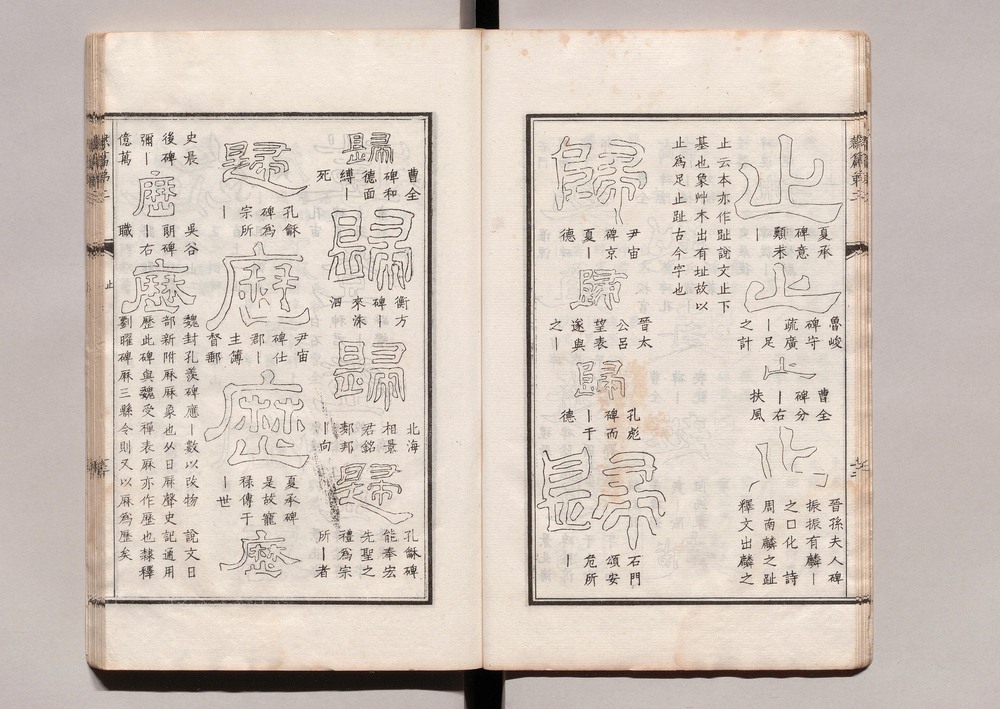 止
夏承
碑意
願未
｜
止
魯峻
碑守
疏廣
｜足
之計
止
曹全
碑分
｜右
扶風
止
晉孫夫人碑
振振有麟｜
之口化　詩
周南麟之趾
釋文出麟之
止云本亦作趾說文止下
基也象艸木出有址故以
止爲足止趾古今字也
歸
尹宙
碑京
夏｜
德
歸
晉太
公呂
望表
遂與
之｜
歸
孔彪
碑而
｜于
德
歸
石門
頌安
危所
｜
歸
曹全
碑和
德面
縛｜
死
歸
衡方
碑｜
來洙
泗
歸
北海
相景
君銘
鄉邦
｜向
歸
孔龢碑
能奉宏
先聖之
禮爲宗
所｜者
歸
孔龢
碑爲
宗所
｜
歷
尹宙
碑仕
郡｜
主簿
督郵
歷
夏承碑
是故寵
祿傳于
｜世
歷
史晨
後碑
彌｜
億萬
歷
吳谷
朗碑
｜右
職
歷
魏封孔羨碑應｜數以改物　說文日
部新附曆曆象也从日厤聲史記通用
歷此碑與魏受禪表曆亦作歷也隸釋
劉曜碑曆三縣令則又以曆爲歷矣